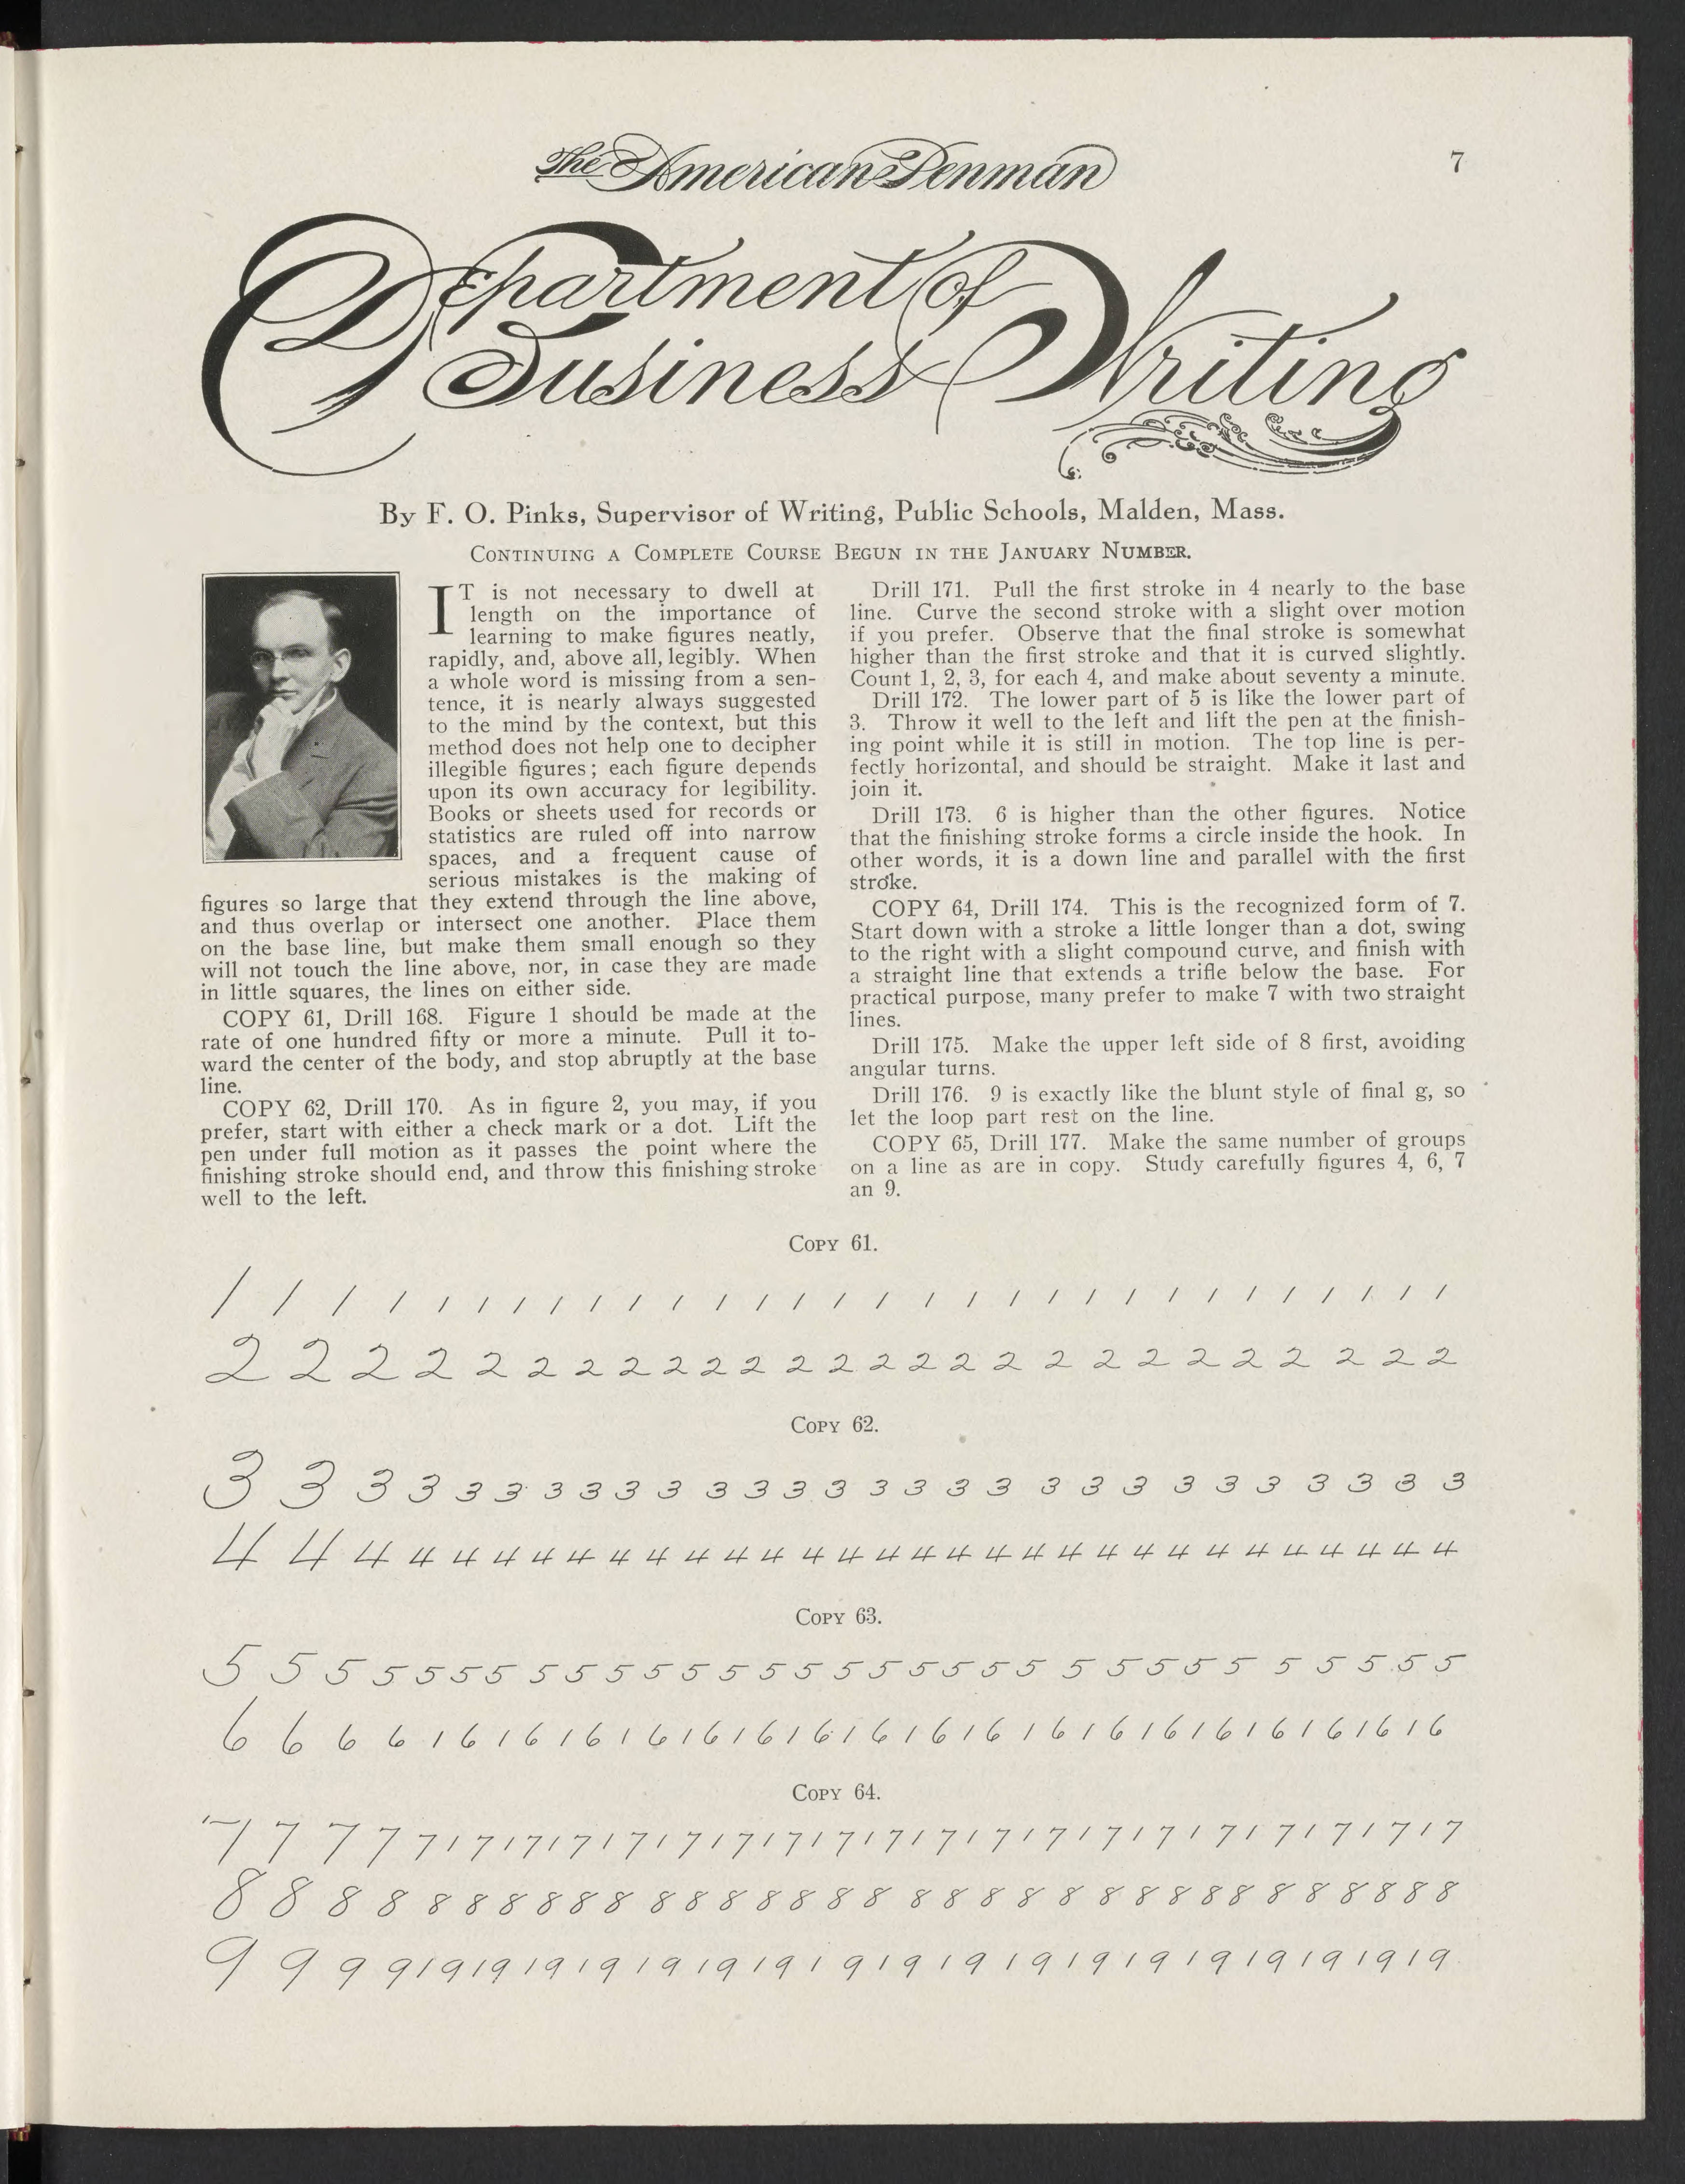 The American Penman
7
Department of
Business Writing
By F. O. Pinks, Supervisor of Writing, Public Schools, Malden, Mass.
Continuing a Complete Course Begun in the January Number.
IT is not necessary to dwell at
length on the importance of
learning to make figures neatly,
rapidly, and, above all, legibly. When
a whole word is missing from a sen-
tence, it is nearly always suggested
to the mind by the context, but this
method does not help one to decipher
illegible figures; each figure depends
upon its own accuracy for legibility.
Books or sheets used for records or
statistics are ruled off into narrow
spaces, and a frequent cause of
serious mistakes is the making of
figures so large that they extend through the line above,
and thus overlap or intersect one another. Place them
on the base line, but make them small enough so they
will not touch the line above, nor, in case they are made
in little squares, the lines on either side.
COPY 61, Drill 168. Figure 1 should be made at the
rate of one hundred fifty or more a minute. Pull it to-
ward the center of the body, and stop abruptly at the base
line.
COPY 62, Drill 170. As in figure 2, you may, if you
prefer, start with either a check mark or a dot. Lift the
pen under full motion as it passes the point where the
finishing stroke should end, and throw this finishing stroke
well to the left.
Drill 171. Pull the first stroke in 4 nearly to the base
line. Curve the second stroke with a slight over motion
if you prefer. Observe that the final stroke is somewhat
higher than the first stroke and that it is curved slightly.
Count 1, 2, 3, for each 4, and make about seventy a minute.
Drill 172. The lower part of 5 is like the lower part of
3. Throw it well to the left and lift the pen at the finish-
ing point while it is still in motion. The top line is per-
fectly horizontal, and should be straight. Make it last and
join it.
Drill 173. 6 is higher than the other figures. Notice
that the finishing stroke forms a circle inside the hook. In
other words, it is a down line and parallel with the first
stroke.
COPY 64, Drill 174. This is the recognized form of 7.
Start down with a stroke a little longer than a dot, swing
to the right with a slight compound curve, and finish with
a straight line that extends a trifle below the base. For
practical purpose, many prefer to make 7 with two straight
lines.
Drill 175. Make the upper left side of 8 first, avoiding
angular turns.
Drill 176. 9 is exactly like the blunt style of final g, so
let the loop part rest on the line.
COPY 65, Drill 177. Make the same number of groups
on a line as are in copy. Study carefully figures 4, 6, 7
an 9.
Copy 61.
1 1 1 1 1 1 1 1 1 1 1 1 1 1 1 1 1 1 1 1 1 1 1 1 1 1 1 1 1 1
2 2 2 2 2 2 2 2 2 2 2 2 2 2 2 2 2 2 2 2 2 2 2 2 2 2
Copy 62.
3 3 3 3 3 3 3 3 3 3 3 3 3 3 3 3 3 3 3 3 3 3 3 3 3 3 3 3
4 4 4 4 4 4 4 4 4 4 4 4 4 4 4 4 4 4 4 4 4 4 4 4 4 4 4 4 4 4 4 4
Copy 63.
5 5 5 5 5 5 5 5 5 5 5 5 5 5 5 5 5 5 5 5 5 5 5 5 5 5 5 5 5 5 5
6 6 6 6 1 6 1 6 1 6 1 6 1 6 1 6 1 6 1 6 1 6 1 6 1 6 1 6 1 6 1 6 1 6 1 6 1 6 1 6
Copy 64.
7 7 7 7 7 1 7 1 7 1 7 1 7 1 7 1 7 1 7 1 7 1 7 1 7 1 7 1 7 1 7 1 7 1 7 1 7 1 7 1 7 1 7
8 8 8 8 8 8 8 8 8 8 8 8 8 8 8 8 8 8 8 8 8 8 8 8 8 8 8 8 8 8 8 8 8
9 9 9 9 1 9 1 9 1 9 1 9 1 9 1 9 1 9 1 9 1 9 1 9 1 9 1 9 1 9 1 9 1 9 1 9 1 9 1 9